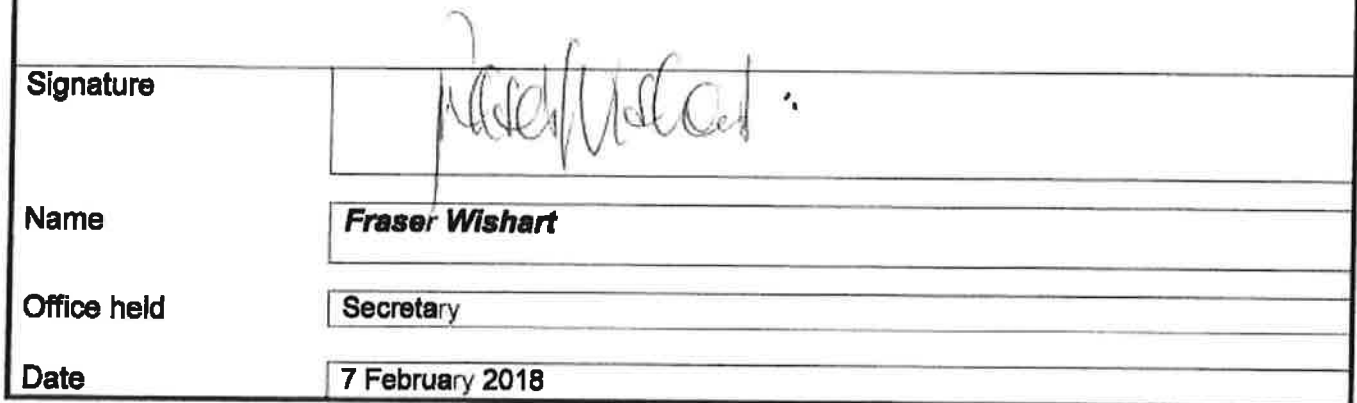 Signature
Fraser Wishart
Name
Fraser Wishart
Office held
Secretary
Date
7 February 2018